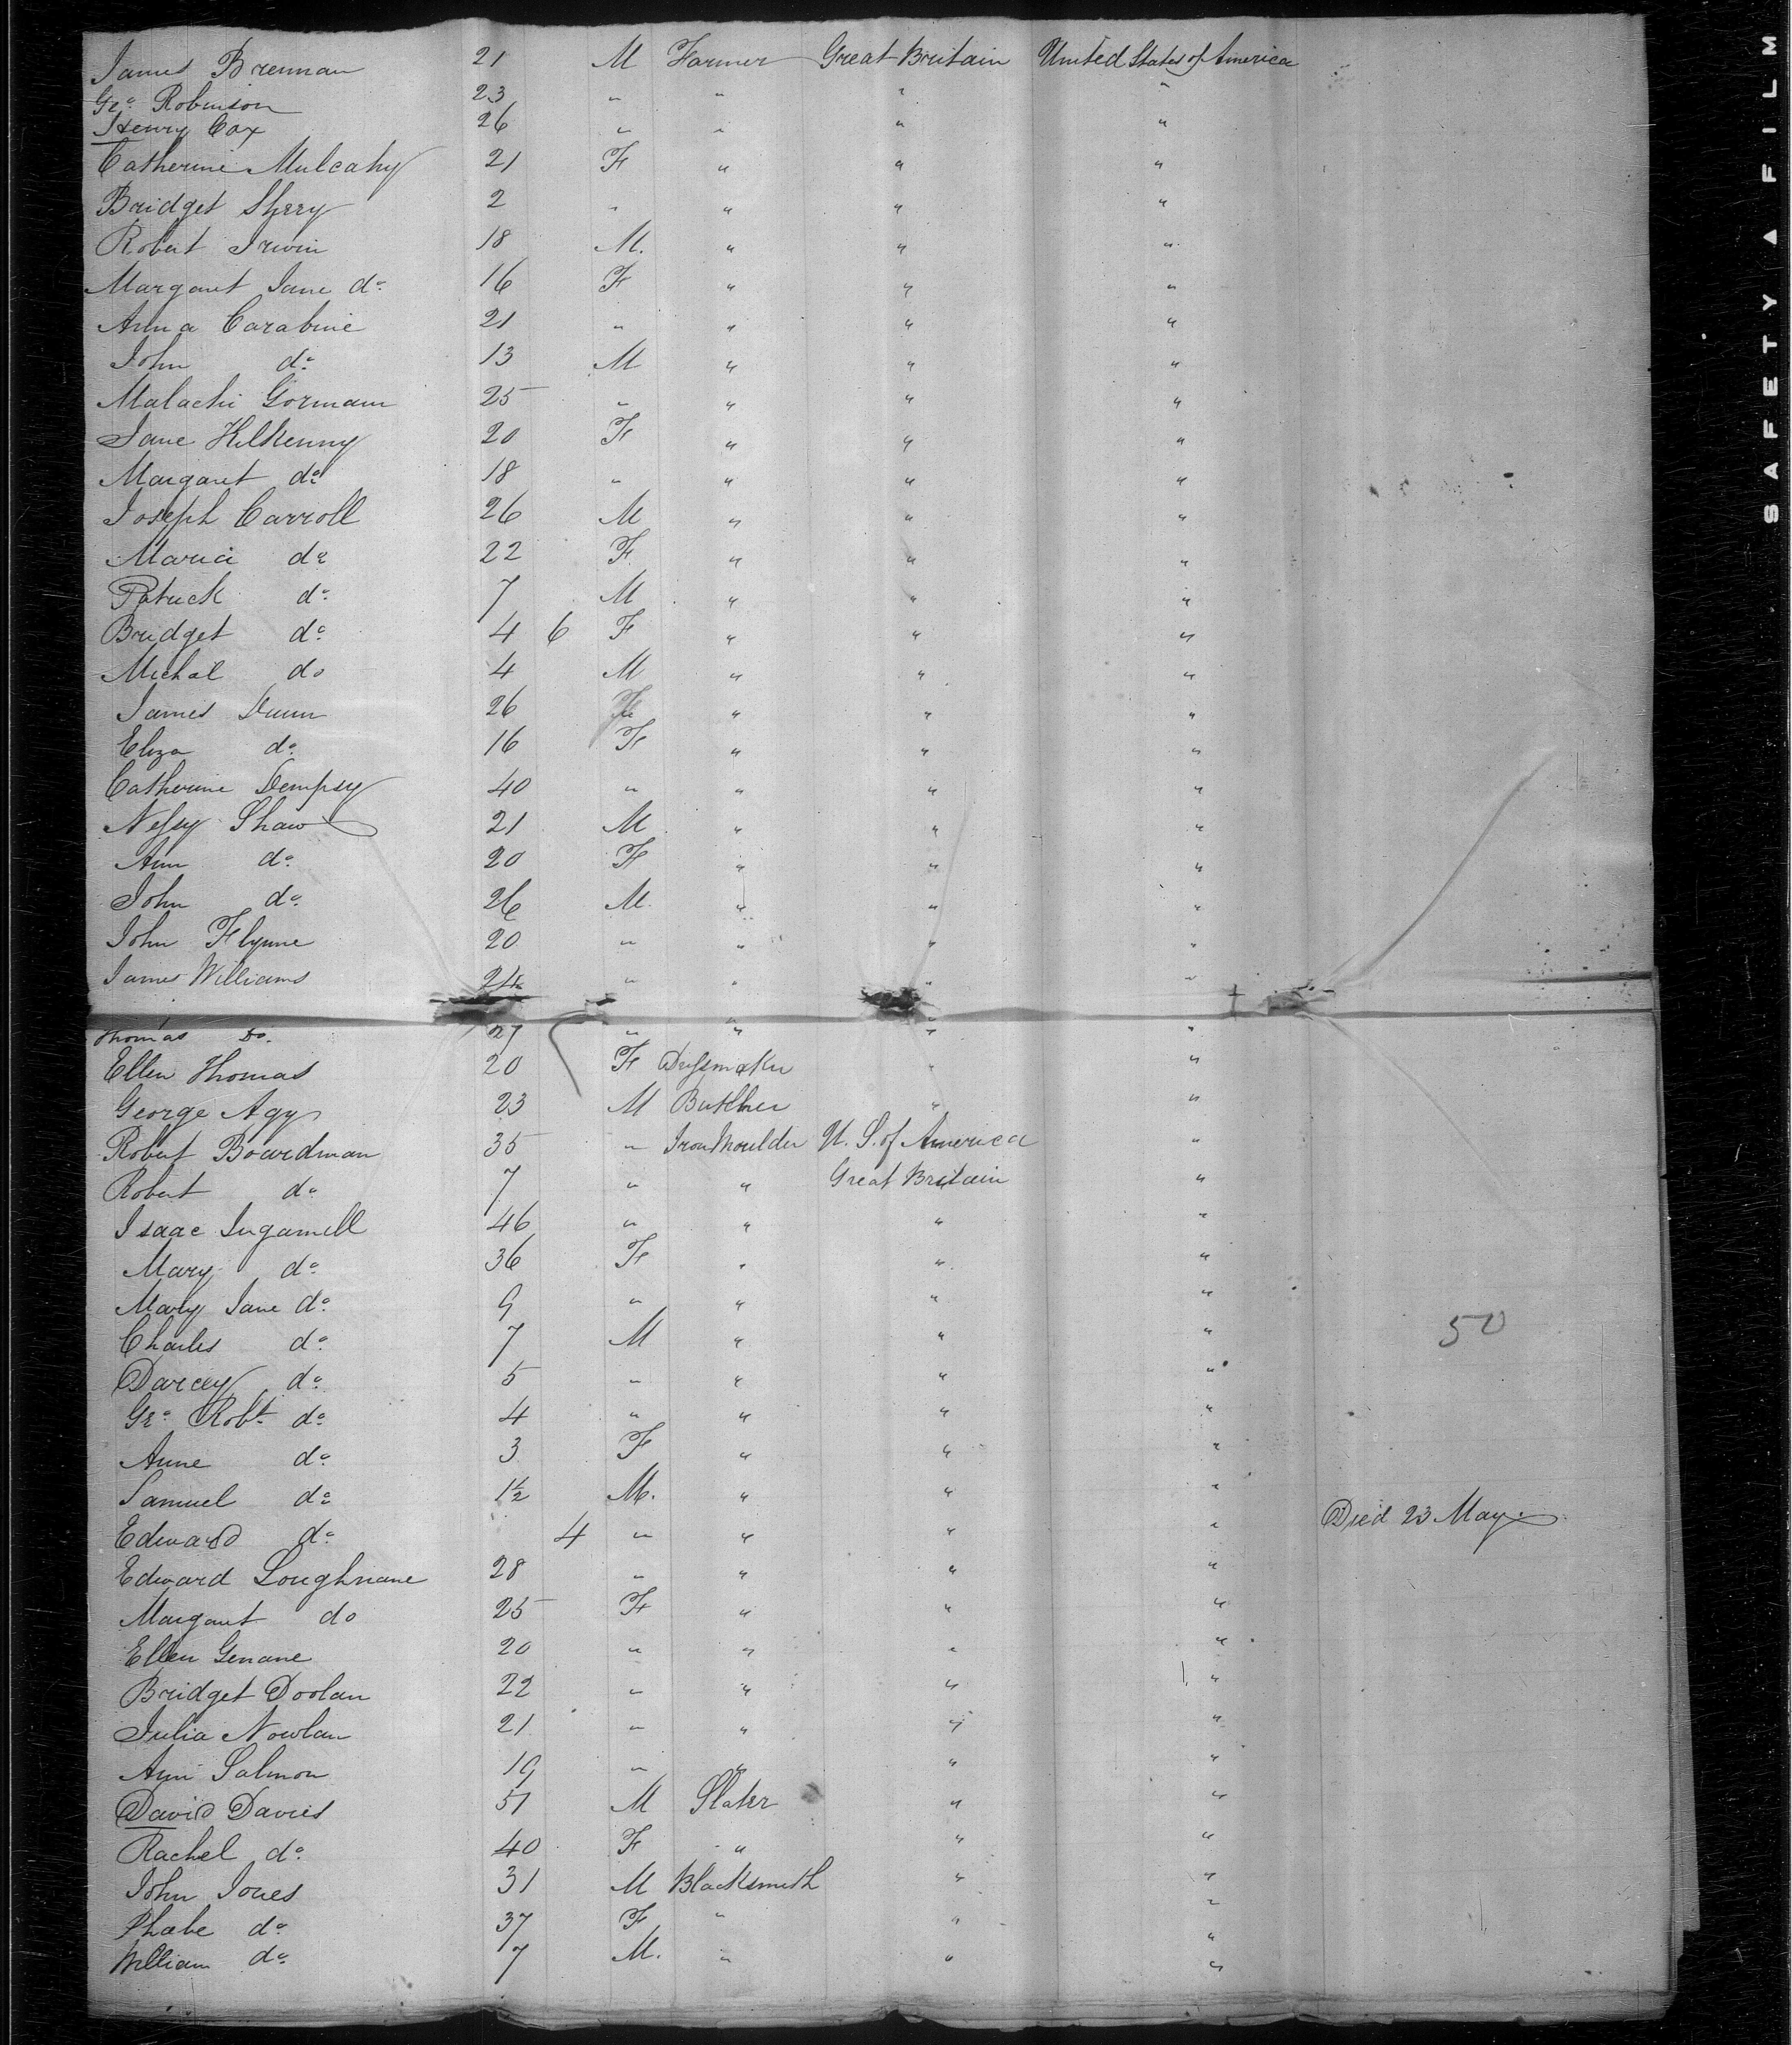 James Brennan 21 M Farmer Great Britain United States of America
Geo Robinson 23 " " " "
Henry Cox 26 " " " "
Catherine Mulcahy 21 F " " "
Bridget Sherry 2 " " " "
Robert Irwin 18 M. " " "
Margaret Jane do 16 F " " "
Anna Carabine 21 " " " "
John do 13 M " " "
Malachi Gorman 25 " " " "
Jane Kilkenny 20 F " " "
Margaret do 18 " " " "
Joseph Carroll 26 M " " "
Maria do 22 F " " "
Patrick do 7 M " " "
Bridget do 4 6 F " " "
Michal do 4 M " " "
James Dunn 26 " " "
Eliza do 16 F " " "
Catherine Dempsy 40 " " " "
Shaw 21 M " " "
Ann do 20 F " " "
John do 26 M " " "
John Flynne 20 " " " "
James Williams 24 " " " "
Thomas Do. 27 " " " "
Ellen Thomas 20 F Dressmaker " "
George Agy 23 M Butcher " "
Robert Boardman 35 " Iron Moulder U. S. of America "
Robert do 7 " " Great Britain "
Isaac Ingamell 46 " " " "
Mary do 36 F " " "
Mary Jane do 9 " " " "
Charles do 7 M " " "
Darcey do 5 " " " "
50
Geo Robt do 4 " " " "
Anne do 3 F " " "
Samuel do 1½ M. " " "
Edward do 4 " " " " Died 23 May
Edward Loughnane 28 " " " "
Margaret do 25 F " " "
Ellen Genane 20 " " " "
Bridget Doolan 22 " " " "
Julia Nowlan 21 " " " "
Ann Salmon 19 " " " "
David Davies 51 M Slater " "
Rachel do 40 F " " "
John Jones 31 M Blacksmith " "
Phabe do 37 F " " "
William do 7 M. " " "
SAFETY A FILM